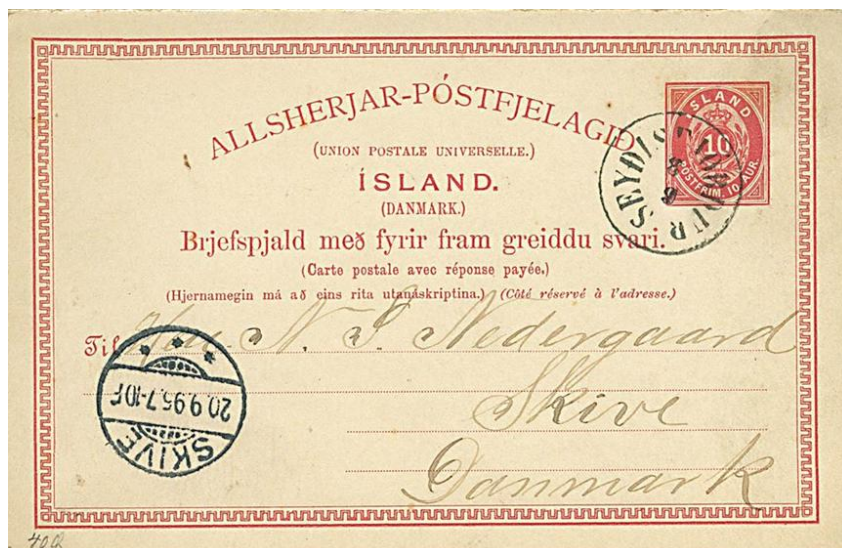 ALLSHERJAR-PÓSTFJELAGIÐ
(UNION POSTALE UNIVERSELLE.)
ÍSLAND.
(DANMARK.)
Brjefspjald með fyrir fram greiddu svari.
(Carte postale avec réponse payée.)
(Hjernamegin má að eins rita utanáskriptina.) (Côté réservé à l'adresse.)
ÍSLAND
10
PÓSTFRIM. 10 AUR.
SEYÐISFJÖRÐUR
8
9
Til N. S Nedergaard
Skive
Danmark
20.9.95.7-10F
SKIVE